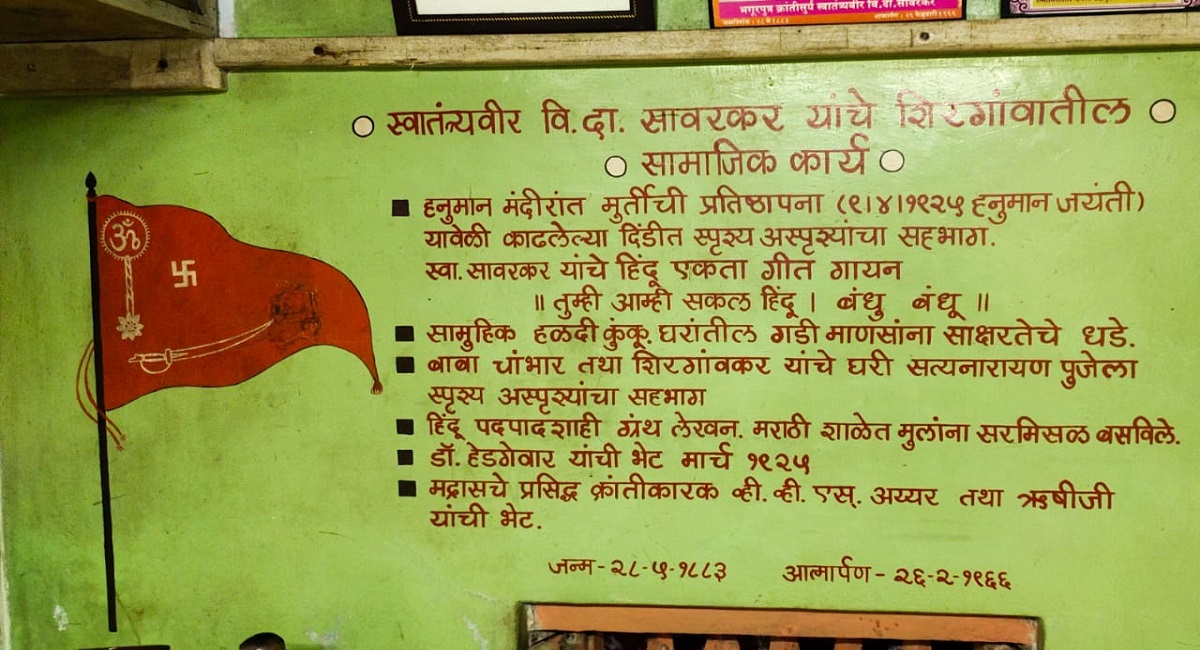 भगूरपुत्र क्रांतीसुर्य स्वातंत्र्यवीर वि.दा.सावरकर
स्वातंत्र्यवीर वि.दा. सावरकर यांचे शिरगांवातील
सामाजिक कार्य
हनुमान मंदीरांत मुर्तीची प्रतिष्ठापना (९।४।१९२५ हनुमान जयंती)
यावेळी काढलेल्या दिंडीत स्पृश्य अस्पृश्यांचा सहभाग.
स्वा. सावरकर यांचे हिंदू एकता गीत गायन
॥ तुम्ही आम्ही सकल हिंदू । बंधु बंधू ॥
सामुहिक हळदी कुंकू. घरांतील गडी माणसांना साक्षरतेचे धडे.
बाबा चांभार तथा शिरगांवकर यांचे घरी सत्यनारायण पुजेला
स्पृश्य अस्पृश्यांचा सहभाग
हिंदू पदपादशाही ग्रंथ लेखन. मराठी शाळेत मुलांना सरमिसळ बसविले.
डॉ. हेडगेवार यांची भेट मार्च १९२५
मद्रासचे प्रसिद्ध क्रांतीकारक व्ही. व्ही. एस्. अय्यर तथा ऋषीजी
यांची भेट.
जन्म - २८-५-१८८३ आत्मार्पण - २६-२-१९६६
ॐ